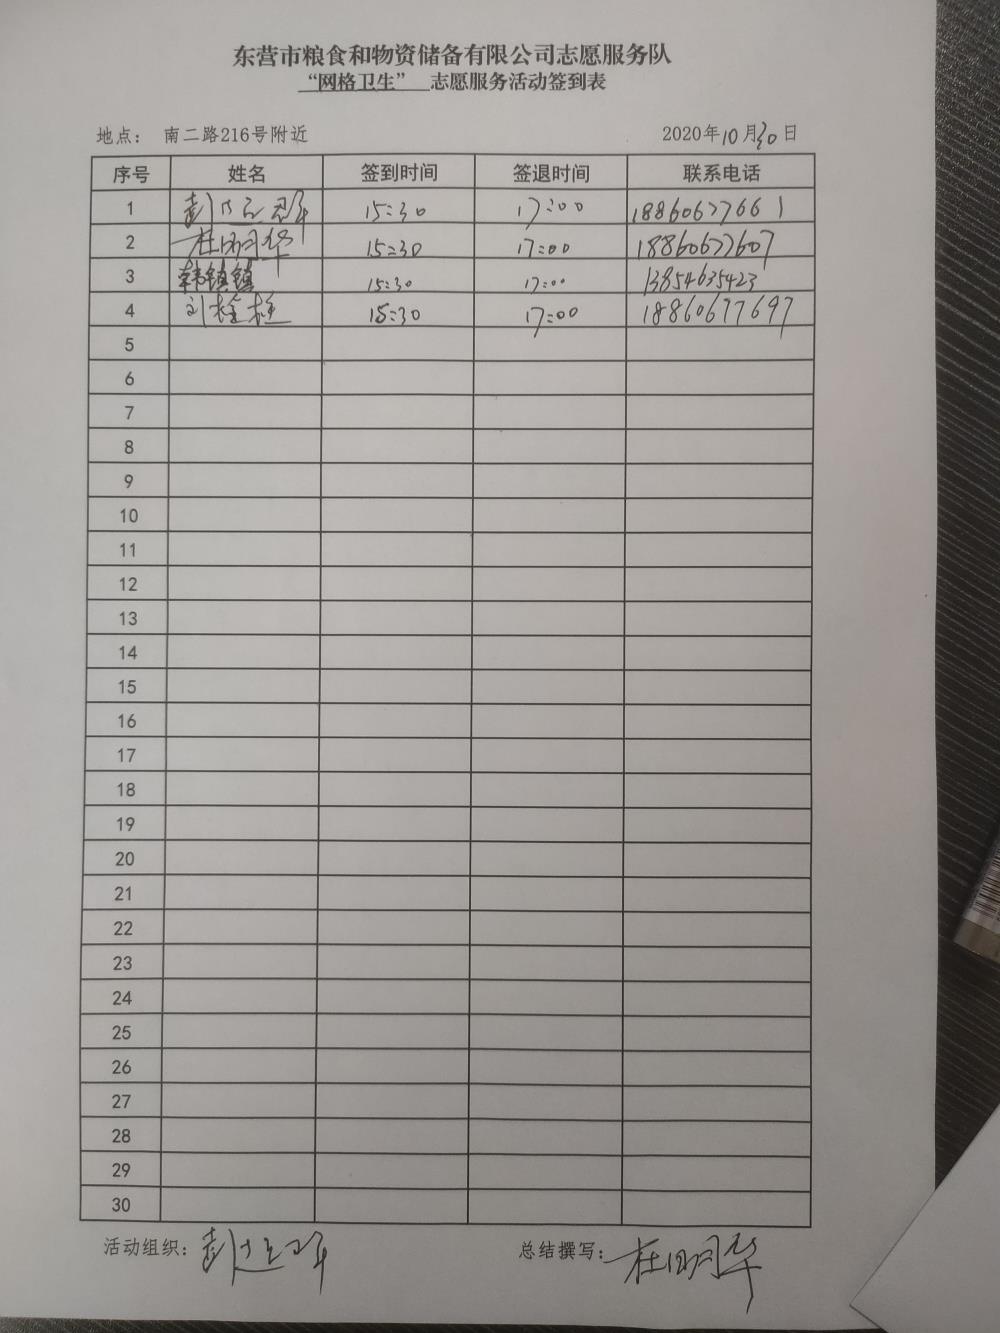 东营市粮食和物资储备有限公司志愿服务队
“网格卫生” 志愿服务活动签到表
地点： 南二路216号附近 2020年10月30日
序号 姓名 签到时间 签退时间 联系电话
1 彭 15:30 17:00 18860677661
2 杜明华 15:30 17:00 18860677607
3 韩镇镇 15:30 17:00 13854635423
4 刘栓柱 15:30 17:00 18860677697
5
6
7
8
9
10
11
12
13
14
15
16
17
18
19
20
21
22
23
24
25
26
27
28
29
30
活动组织： 彭 总结撰写： 杜明华